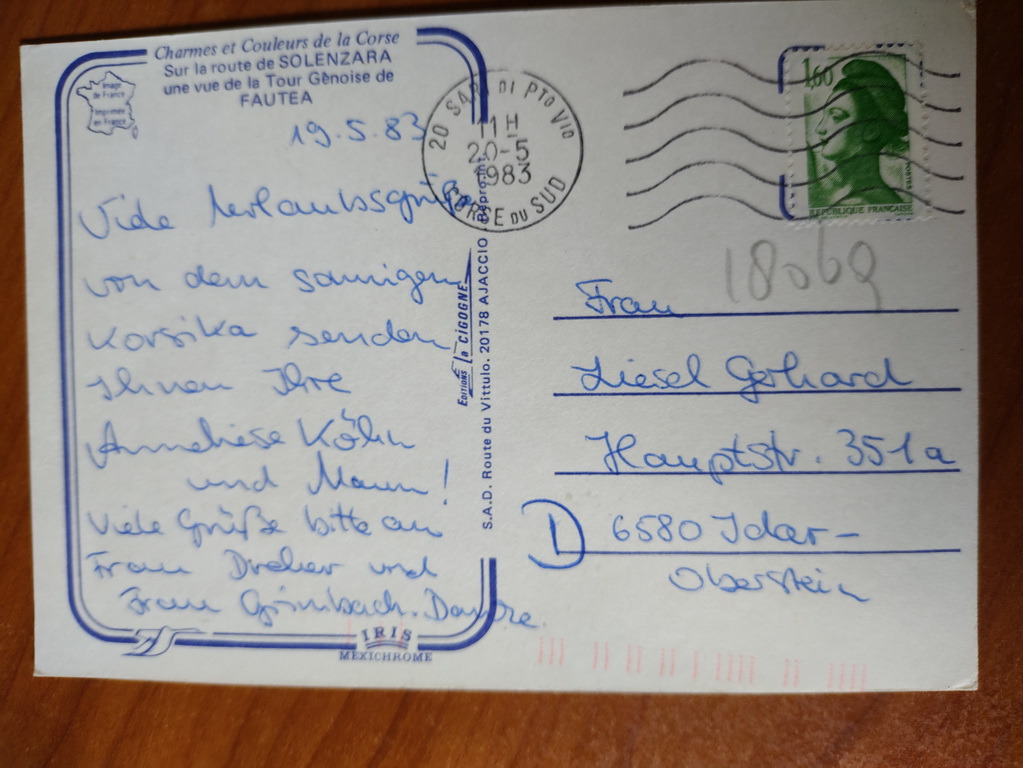 Charmes et Couleurs de la Corse
Sur la route de SOLENZARA
une vue de la Tour Gênoise de
FAUTEA
Image
de France
Imprimée
en France
19.5.83
Viele Urlaubsgrüße
von dem sonnigen
Korsika senden
Ihnen Ihre
Anneliese Köhn
und Mann!
Viele Grüße bitte an
Frau Dreher und
Frau Grimbach. Danke.
IRIS
MEXICHROME
EDITIONS la CIGOGNE
S.A.D. Route du Vittulo. 20178 AJACCIO
20 SARI DI PTO VIO
11 H
20-5
1983
CORSE DU SUD
1,60
REPUBLIQUE FRANCAISE
18069
Frau
Liesel Gerhard
Hauptstr. 351a
D 6580 Idar-
Oberstein